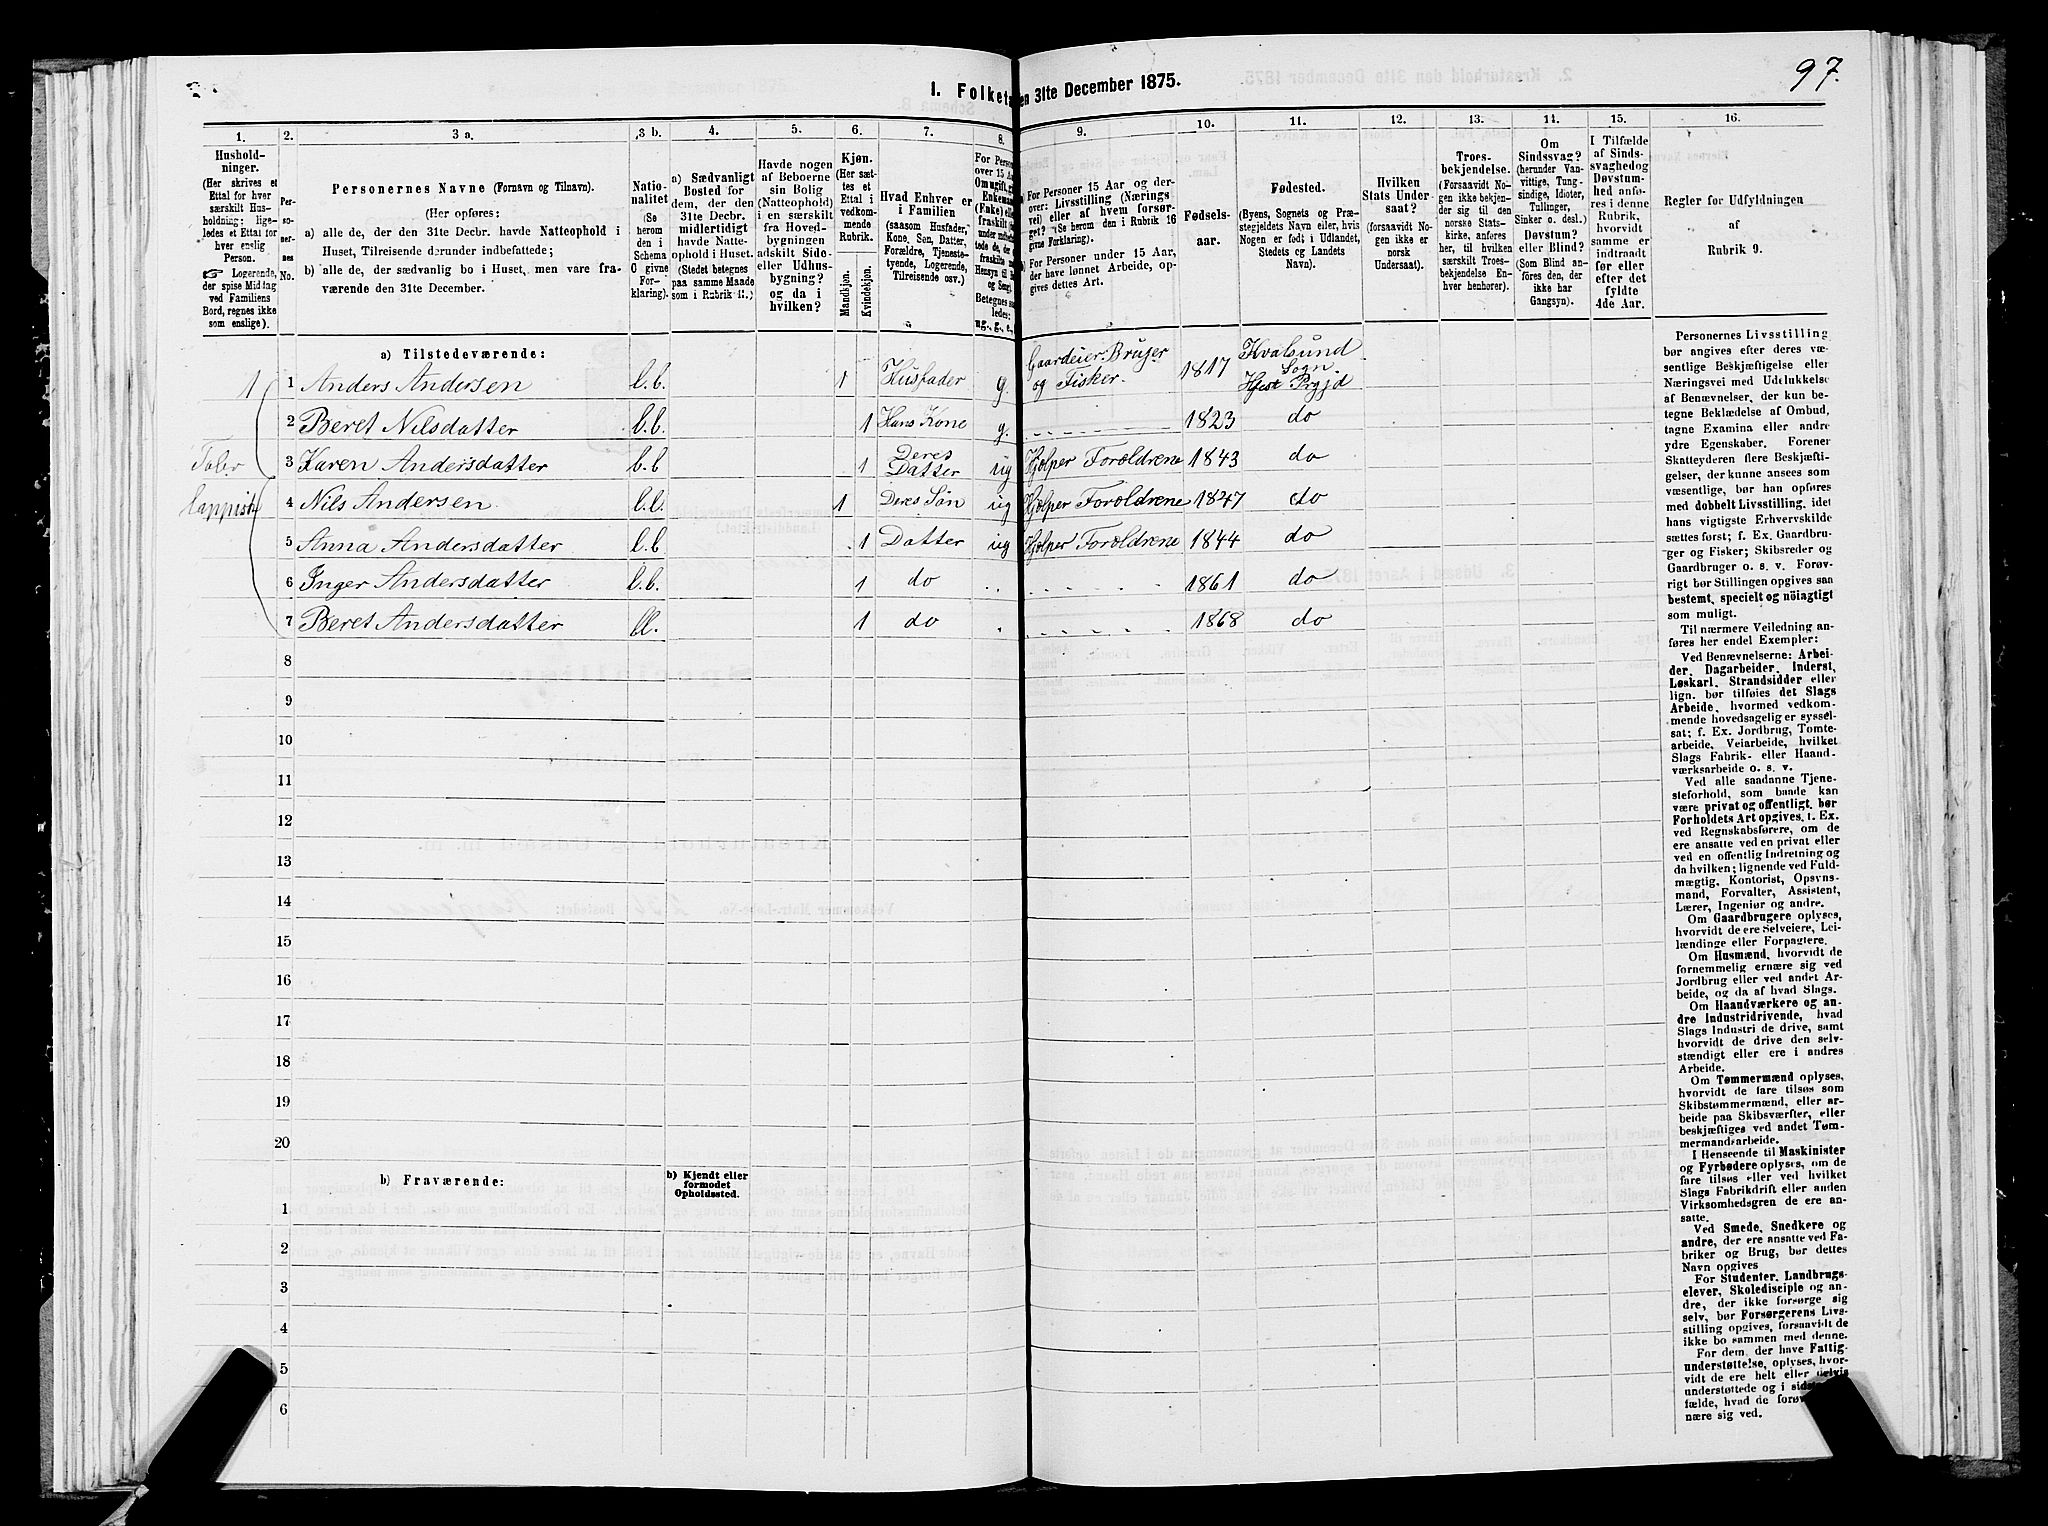 97.
1. Folketa en 31te December 1875.
1. 2. 3 a. 3 b. 4. 5. 6. 7. 8. 9. 10. 11. 12. 13. 14. 15. 16.
Hushold-
ninger.
(Her skrives et
Ettal for hver
særskilt Hus-
holdning; lige-
ledes et Ettal for
hver enslig
Person.
☞ Logerende,
der spise Middag
ved Familiens
Bord, regnes ikke
som enslige).
Per-
so-
ner-
nes
No.
Personernes Navne (Fornavn og Tilnavn).
(Her opføres:
a) alle de, der den 31te Decbr. havde Natteophold i
Huset, Tilreisende derunder indbefattede;
b) alle de, der sædvanlig bo i Huset, men vare fra-
værende den 31te December.
Natio-
nalitet
(Se
herom
den i
Schema
C givne
For-
klaring).
a) Sædvanligt
Bosted for
dem, der den
31te Decbr.
midlertidigt
havde Natte-
ophold i Huset.
(Stedet betegnes
paa samme Maade
som i Rubrik 11.)
Havde nogen
af Beboerne
sin Bolig
(Natteophold)
i en særskilt
fra Hoved-
bygningen
adskilt Side-
eller Udhus-
bygning?
og da i
hvilken?
Kjøn.
(Her sæt-
tes et
Ettal i
vedkom-
mende
Rubrik.
Mandkjøn.
Kvindekjøn.
Hvad Enhver er
i Familien
(saasom Husfader,
Kone, Søn, Datter,
Forældre, Tjeneste-
tyende, Logerende,
Tilreisende osv.)
For Person
over 15 Aar
Om ugift, gi
Enkeman
(Enke) elle
fraskilt
Betegnes saa
ledes:
ug., g., e.,
For Personer 15 Aar og der-
over: Livsstilling (Nærings
vei) eller af hvem forsør-
get? (Se herom den i Rubrik 16
givne Forklaring).
For Personer under 15 Aar,
der have lønnet Arbeide, op-
gives dettes Art.
Fødsels-
aar.
Fødested.
(Byens, Sognets og Præ-
stegjeldets Navn eller, hvis
Nogen er født i Udlandet,
Stedets og Landets
Navn).
Hvilken
Stats Under-
saat?
(forsaavidt No-
gen ikke er
norsk
Undersaat).
Troes-
bekjendelse.
(Forsaavidt No-
gen ikke bekjen-
der sig til den
norske Stats-
kirke, anføres
her, til hvilken
særskilt Troes-
bekjendelse En-
hver henhører).
Om
Sindssvag?
(herunder Van-
vittige, Tung-
sindige, Idioter,
Tullinger,
Sinker o. desl.)
Døvstum?
eller Blind?
(Som Blind an-
føres den, der
ikke har
Gangsyn).
I Tilfælde
af Sinds-
svaghed og
Døvstum-
hed anfø-
res i denne
Rubrik,
hvorvidt
samme er
indtraadt
før eller
efter det
fyldte
4de Aar.
Regler for Udfyldningen
af
Rubrik 9.
a) Tilstedeværende:
1 1 Anders Andersen b.b. 1 Husfader g. Gaardeier. Bruger og Fisker. 1817 Kvalsund Sogn. Hfest Prgjd
2 Beret Nilsdatter b.b. 1 Hans Kone g. 1823 do
3 Karen Andersdatter b.b 1 Deres Datter ug Hjelper Forældrene 1843 do
4 Nils Andersen b.b. 1 Deres Søn ug Hjelper Forældrene 1847 do
5 Anna Andersdatter b.b 1 Datter ug Hjelper Forældrene 1844 do
6 Inger Andersdatter b.b. 1 do 1861 do
7 Beret Andersdatter bb. 1 do 1868 do
Taler
lappisk
8
9
10
11
12
13
14
15
16
17
18
19
20
b) Fraværende:
b) Kjendt eller
formodet
Opholdssted.
1
2
3
4
5
6
Personernes Livsstilling
bør angives efter deres væ-
sentlige Beskjæftigelse eller
Næringsvei med Udelukkelse
af Benævnelser, der kun be-
tegne Beklædelse af Ombud,
tagne Examina eller andre
ydre Egenskaber. Forener
Skatteyderen flere Beskjæfti-
gelser, der kunne ansees som
væsentlige, bør han opføres
med dobbelt Livsstilling, idet
hans vigtigste Erhvervskilde
sættes først; f. Ex. Gaardbru-
ger og Fisker; Skibsreder og
Gaardbruger o. s. v. Forøv-
rigt bør Stillingen opgives saa
bestemt, specielt og nöiagtigt
som muligt.
Til nærmere Veiledning an-
føres her endel Exempler:
Ved Benævnelserne: Arbei-
der, Dagarbeider, Inderst,
Løskarl, Strandsidder eller
lign. bør tilføies det Slags
Arbeide, hvormed vedkom-
mende hovedsagelig er syssel-
sat; f. Ex. Jordbrug, Tomte-
arbeide, Veiarbeide, hvilket
Slags Fabrik- eller Haand-
værksarbeide o. s. v.
Ved alle saadanne Tjene-
steforhold, som baade kan
være privat og offentligt, bør
Forholdets Art opgives, f. Ex.
ved Regnskabsførere, om de
ere ansatte ved en privat eller
ved en offentlig Indretning og
da hvilken; lignende ved Fuld-
mægtig, Kontorist, Opsyns-
mand, Forvalter, Assistent,
Lærer, Ingeniør og andre.
Om Gaardbrugere oplyses,
hvorvidt de ere Selveiere, Lei-
lændinge eller Forpagtere.
Om Husmænd, hvorvidt de
fornemmelig ernære sig ved
Jordbrug eller ved andet Ar-
beide, og da af hvad Slags.
Om Haandværkere og an-
dre Industridrivende, hvad
Slags Industri de drive, samt
hvorvidt de drive den selv-
stændigt eller ere i andres
Arbeide.
Om Tømmermænd oplyses,
hvorvidt de fare tilsøs som
Skibstømmermænd, eller ar-
beide paa Skibsværfter, eller
beskjæftiges ved andet Tøm-
mermandsarbeide.
I Henseende til Maskinister
og Fyrbødere oplyses, om de
fare tilsøs eller ved hvilket
Slags Fabrikdrift eller anden
Virksomhedsgren de ere an-
satte.
Ved Smede, Snedkere og
andre, der ere ansatte ved Fa-
briker og Brug, bør dettes
Navn opgives
For Studenter, Landbrugs-
elever, Skoledisciple og an-
dre, der ikke forsørge sig
selv, bør Forsørgerens Livs-
stilling opgives, forsaavidt de
ikke bo sammen med denne.
For dem, der have Fattig-
understøttelse, oplyses, hvor-
vidt de ere helt eller delvis
understøttede og i sidst
fælde, hvad de forøv
nære sig ved.